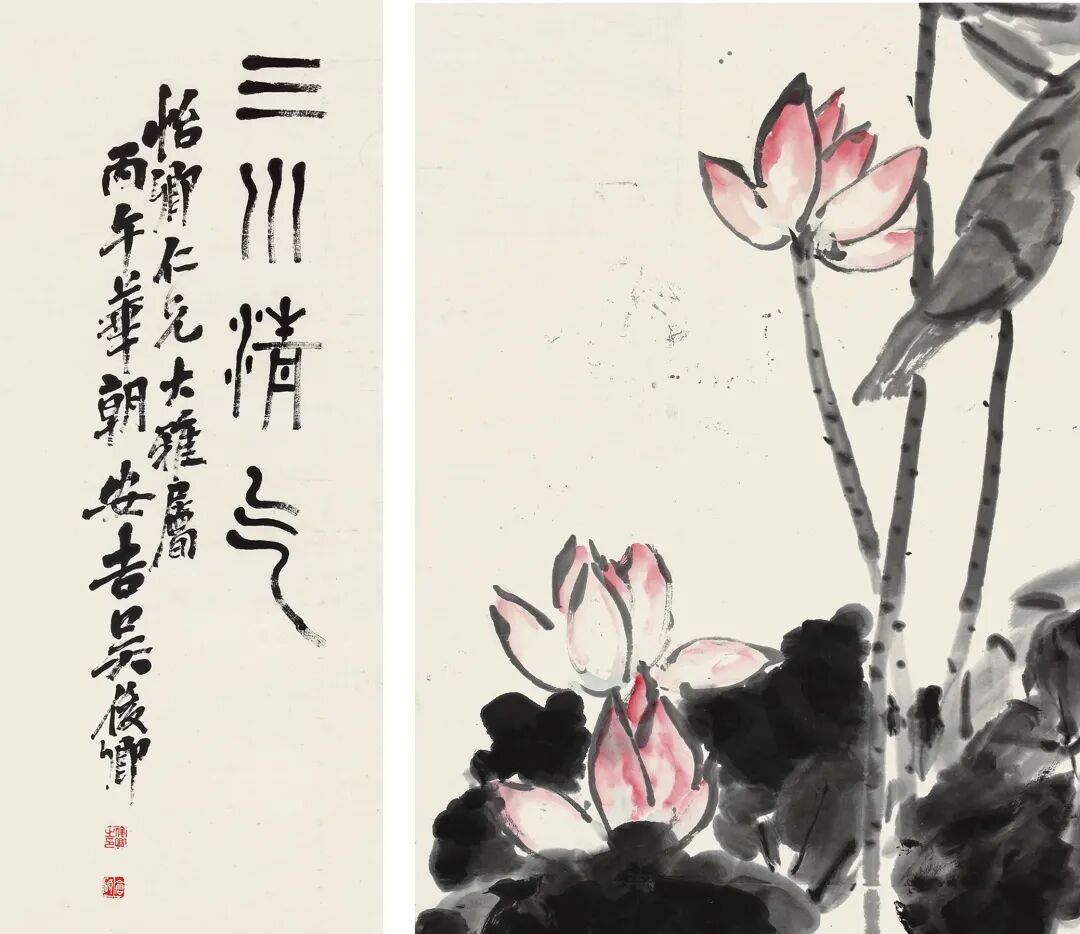 三川清气
怡卿仁兄大雅屬
丙午華朝安吉吴俊卿